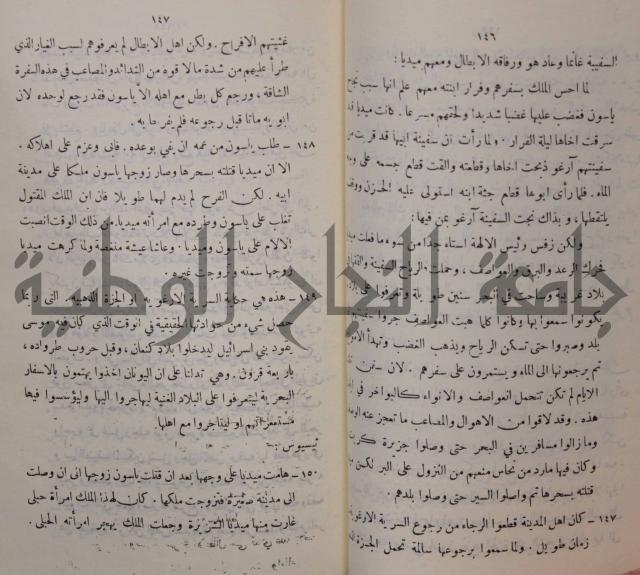 ١٤٦
السفينة غانما وعاد هو ورفاقه الابطال ومعهم ميديا :
لما احس الملك بسفرهم وفرار ابنته معهم علم انها سبب نجاح
ياسون فغضب عليها غضبا شديدا ولحقهم مسرعا . كانت ميديا قد
سرقت اخاها ليلة الفرار . ولما رأت ان سفينة ابيها قد قربت من
سفينتهم آرغو ذبحت اخاها وقطعته والقت قطع جسمه على وجه
الماء . فلما رأى ابوها قطع جثة ابنه استولى عليه الحزن ووقف
يلتقطها ، و بذاك نجت السفينة آرغو بمن فيها :
ولكن زفس رئيس الآلهة استاء جدا من سوء ما فعلت ميديا
فحرك الرعد والبرق والعواصف ، وحملت الرياح السفينة والقتها الى
بلاد غريبة وساحت في البحر سنين طويلة وتعرفوا على بلاد
يكونوا سمعوا بها وكانوا كلما هبت العواصف جروا سفينتهم
بلد وصبروا حتى تسكن الرياح ويذهب الغضب وتهدأ
ثم يرجعونها الى الماء ويستمرون على سفرهم . لان سفن تلك
الايام لم تكن تتحمل العواصف والانواء كالبواخر في ايامنا
هذه . وقد لاقوا من الاهوال والمصاعب ما تعجز عنه
وما زالوا مسافرين في البحر حتى وصلوا جزيرة كريت
وكان فيها مارد من نحاس منعهم من النزول على البر لكن ميديا
قتلته بسحرها ثم واصلوا السير حتى وصلوا بلدهم .
١٤٧ – كان اهل المدينة قطعوا الرجاء من رجوع السرية الارغوية
زمان طويل . ولما سمعوا برجوعها سالمة تحمل الجزة
١٤٧
غشيتهم الافراح . ولكن اهل الابطال لم يعرفوهم لسبب الغيار الذي
طرأ عليهم من شدة ما لاقوه من الشدائد والمصاعب في هذه السفرة
الشاقة ، ورجع كل بطل مع اهله الا ياسون فقد رجع لوحده لان
ابويه ماتا قبل رجوعه فلم يفرحا به .
١٤٨ – طلب ياسون من عمه ان يفي بوعده . فابى وعزم على اهلاكه .
الا ان ميديا قتلته بسحرها وصار زوجها ياسون ملكا على مدينة
ابيه . لكن الفرح لم يدم لهما طويلا فان ابن الملك المقتول
تغلب على ياسون وطرده مع امرأته ميديا . من ذلك الوقت انصبت
الآلام على ياسون وميديا . وعاشا عيشة منغصة ولما كرهت ميديا
زوجها سمته وتزوجت غيره .
١٤٩ – هذه هي حكاية السرية الارغوية او الجزة الذهبية التي ربما
حصل شيء من حوادثها الحقيقية في الوقت الذي كان فيه موسى
يقود بني اسرائيل ليدخلوا بلاد كنعان ، وقبل حروب طرواده ،
باربعة قرون . وهي تدلنا على ان اليونان اخذوا يهتمون بالاسفار
البحرية ليتعرفوا على البلاد الغنية ليهاجروا اليها وليؤسسوا فيها
مستعمراتهم او ليتاجروا مع اهلها .
ثيسيوس
١٥٠ – هامت ميديا على وجهها بعد ان قتلت ياسون زوجها الى ان وصلت
الى مدينة صغيرة فتزوجت ملكها . كان لهذا الملك امرأة حبلى
غارت منها ميديا الشريرة وجعلت الملك يهجر امرأته الحبلى .
جامعة النجاح الوطنية